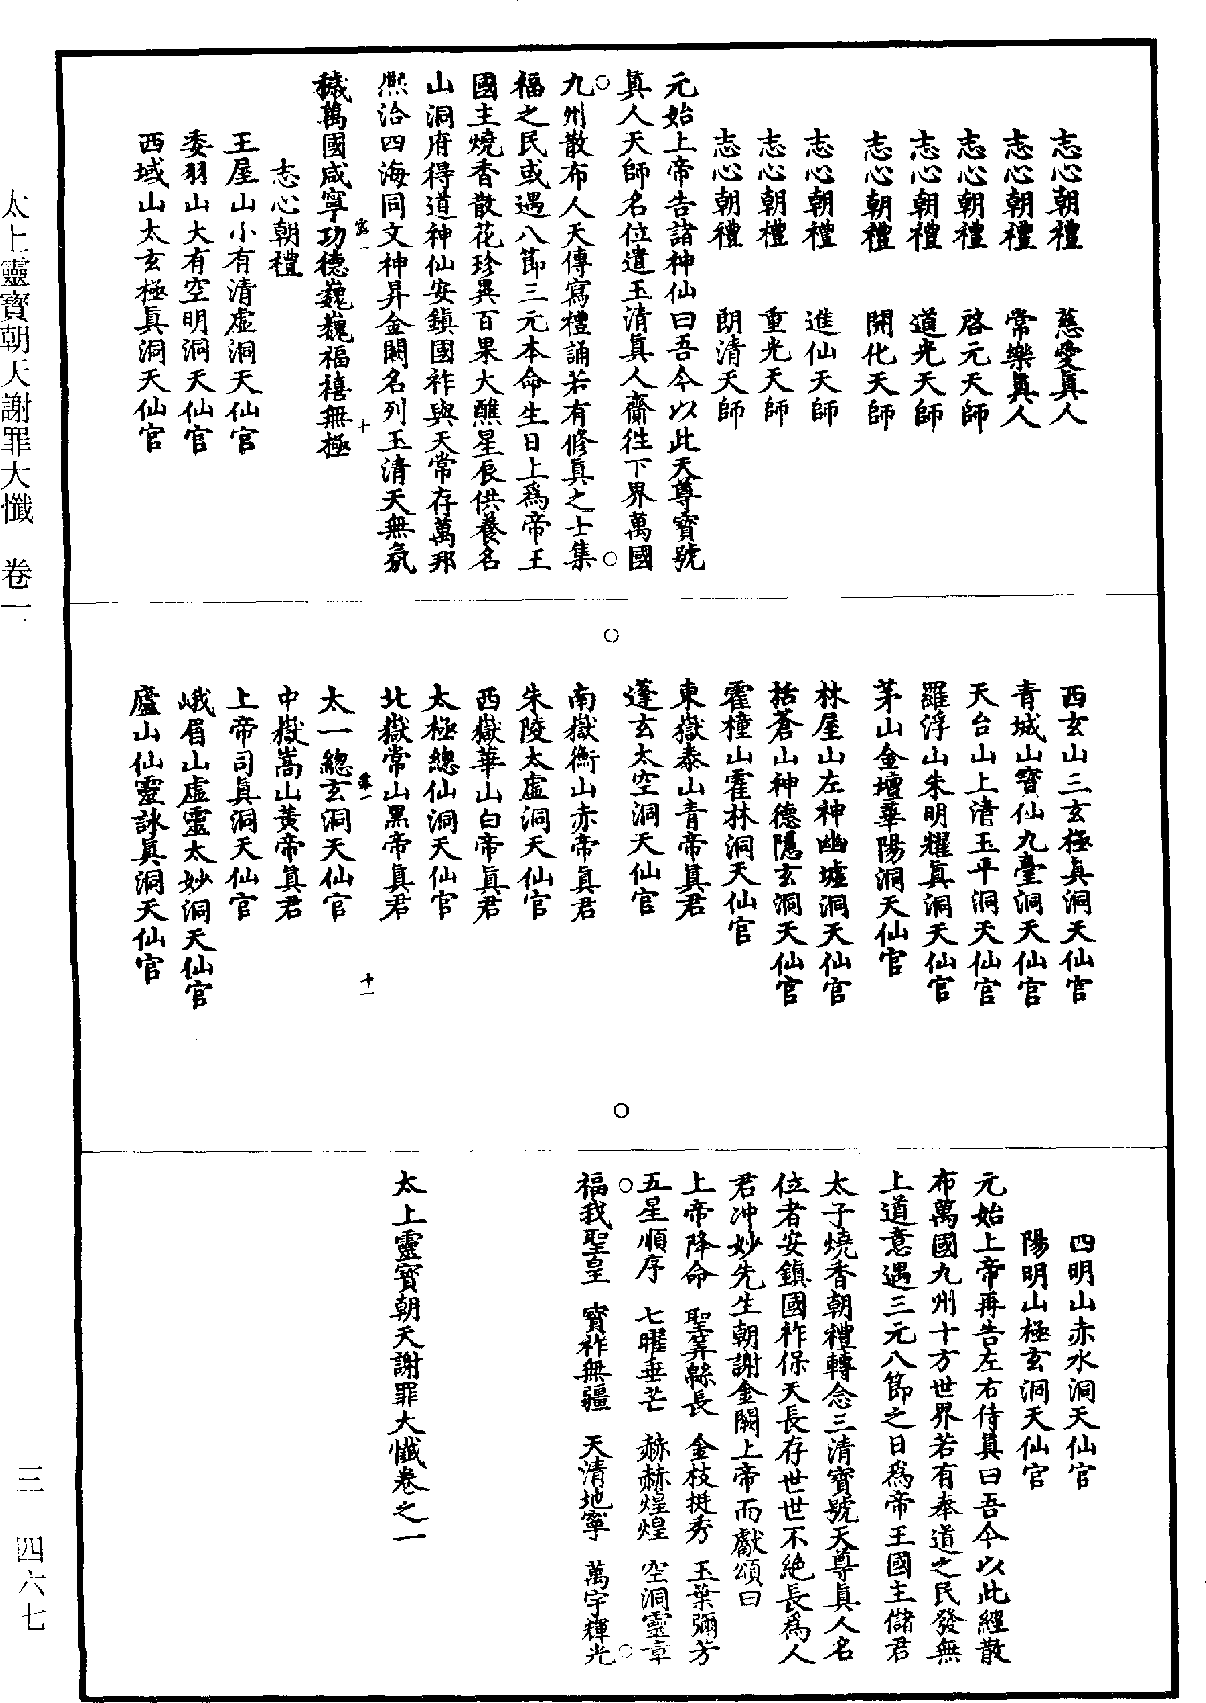 志心朝禮　慈愛眞人
志心朝禮　常樂眞人
志心朝禮　啓元天師
志心朝禮　道光天師
志心朝禮　開化天師
志心朝禮　進仙天師
志心朝禮　重光天師
志心朝禮　朗清天師
元始上帝告諸神仙曰吾今以此天尊寶號
眞人天師名位遣玉清眞人齎徃下界萬國
九州散布人天傳寫禮誦若有修眞之士集
福之民或遇八節三元本命生日上爲帝王
國主燒香散花珍異百果大醮星辰供養名
山洞府得道神仙安鎮國祚與天常存萬邦
熈洽四海同文神昇金闕名列玉清天無氛
穢萬國咸寧功德巍巍福禧無極
十
志心朝禮
王屋山小有清虛洞天仙官
委羽山大有空明洞天仙官
西域山太玄極眞洞天仙官
西玄山三玄極眞洞天仙官
青城山寶仙九臺洞天仙官
天台山上清玉平洞天仙官
羅浮山朱明耀眞洞天仙官
茅山金壇華陽洞天仙官
林屋山左神幽墟洞天仙官
括蒼山神德隱玄洞天仙官
霍橦山霍林洞天仙官
東嶽泰山青帝眞君
蓬玄太空洞天仙官
南嶽衡山赤帝眞君
朱陵太虛洞天仙官
西嶽華山白帝眞君
太極總仙洞天仙官
北嶽常山黑帝眞君
十一
太一總玄洞天仙官
中嶽嵩山黃帝眞君
上帝司眞洞天仙官
峨眉山虛靈太妙洞天仙官
廬山仙靈詠眞洞天仙官
四明山赤水洞天仙官
陽明山極玄洞天仙官
元始上帝再告左右侍眞曰吾今以此經散
布萬國九州十方世界若有奉道之民發無
上道意遇三元八節之日爲帝王國主儲君
太子燒香朝禮轉念三清寶號天尊眞人名
位者安鎮國祚保天長存世世不絶長爲人
君冲妙先生朝謝金闕上帝而獻頌曰
上帝降命　聖筭緜長　金枝挺秀　玉葉彌芳
五星順序　七曜垂芒　赫赫煌煌　空洞靈章
福我聖皇　寶祚無疆　天清地寧　萬宇輝光
太上靈寳朝天謝罪大懺卷之一
太上靈寶朝天謝罪大懺　卷一
三　四六七